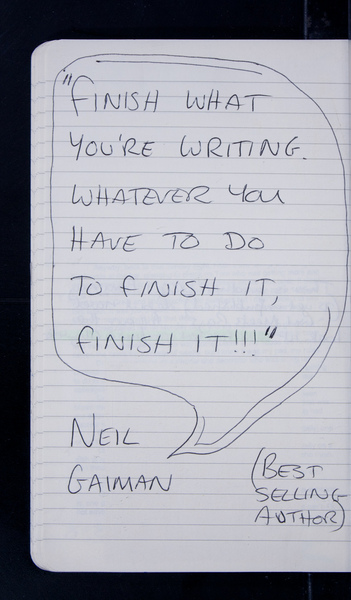 "FINISH WHAT
YOU'RE WRITING.
WHATEVER YOU
HAVE TO DO
TO FINISH IT,
FINISH IT!!!"
NEIL
GAIMAN
(BEST
SELLING
AUTHOR)